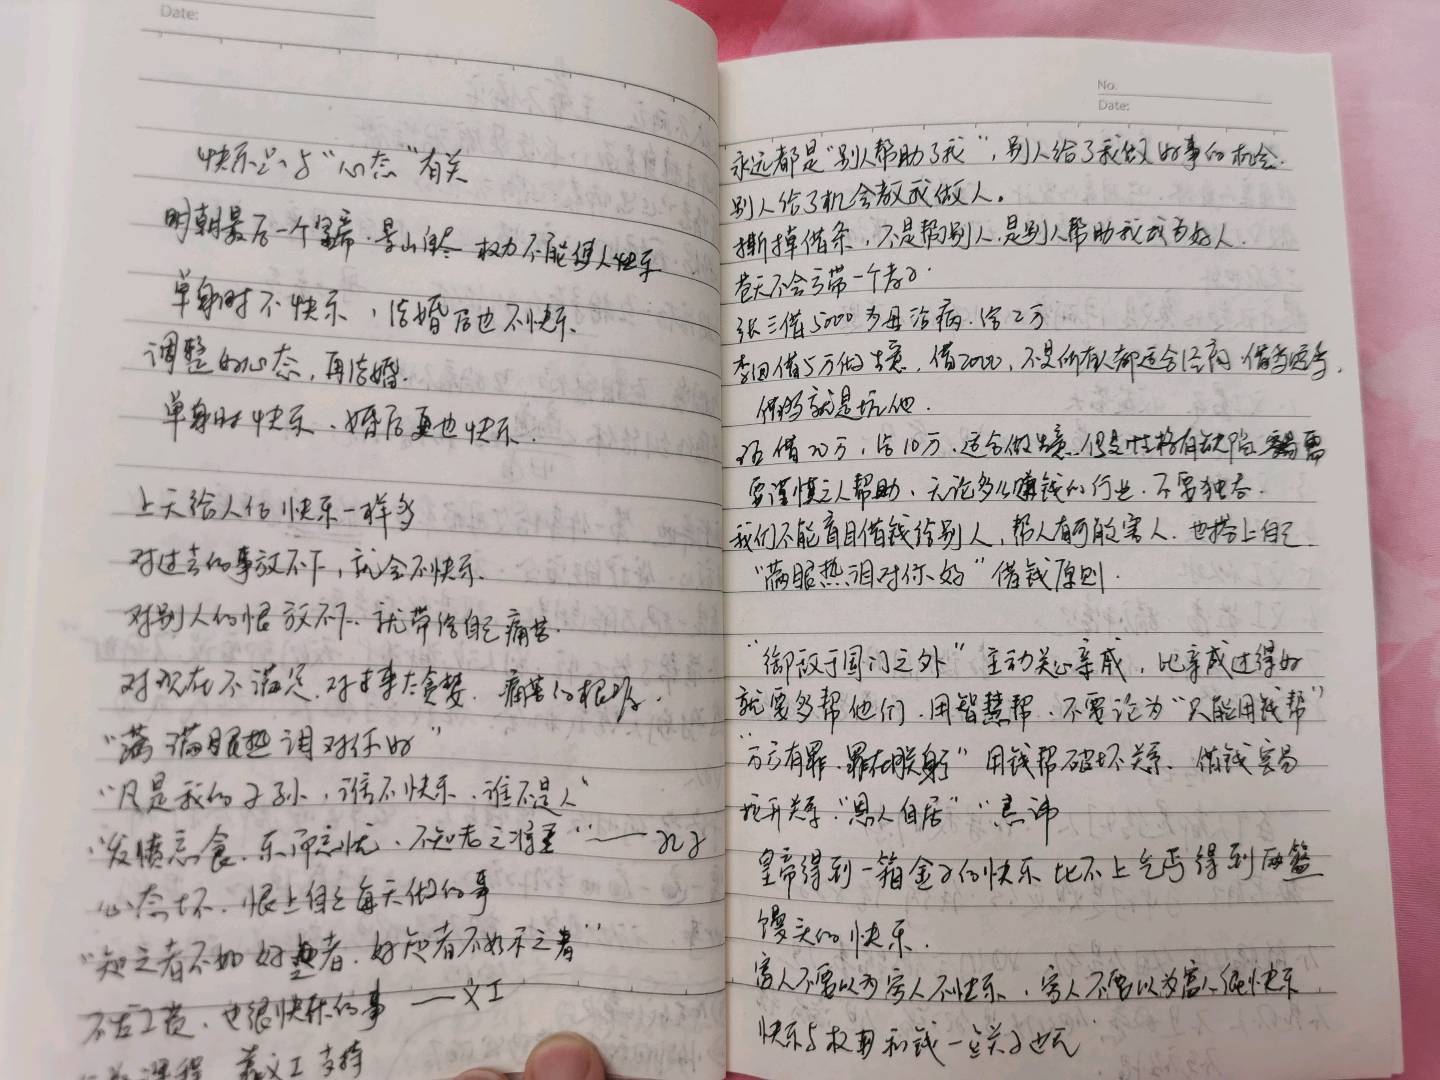 Date:
快乐只与“心态”有关
明朝最后一个皇帝.景山自尽 权力不能使人快乐
单身时不快乐，结婚后也不快乐
调整好心态，再结婚.
单身时快乐、婚后更也快乐.
上天给人的快乐一样多
对过去的事放不下，就会不快乐.
对别人的恨放不下.就带给自己痛苦.
对现在不满足.对未来太贪婪.痛苦的根源.
“满 满眼热泪对你好”
“凡是我的子孙，谁不快乐、谁不是人”
“发愤忘食、乐而忘忧、不知老之将至”——孔子
心态坏.恨上自己每天做的事
“知之者不如好之者.好知者不如乐之者”
不去工资、也很快乐的事 ——义工
课程 靠义工支持
No.
Date:
永远都是“别人帮助了我”，别人给了我做好事的机会.
别人给了机会教我做人。
撕掉借条，不是帮别人.是别人帮助我成为好人.
苍天不会亏带一个孝子.
张三借5000为母治病.给2万
李四借5万做生意，借2000，不是所有人都适合经商.借当适当，
借多就是坑他.
借20万，给10万.适合做生意.但是性格有缺陷.
要谨慎之人帮助、无论多么赚钱的行业.不要独吞.
我们不能盲目借钱给别人，帮人有可能害人.也搭上自己.
“满眼热泪对你好”借钱原则.
“御敌于国门之外”主动关心亲戚，比亲戚过得好
就要多帮他们.用智慧帮.不要论为“只能用钱帮”
“万方有罪.罪在朕躬”用钱帮破坏关系.借钱容易
“恩人自居”
皇帝得到一箱金子的快乐比不上乞丐得到两篮
馒头的快乐.
富人不要以为穷人不快乐、穷人不要以为富人很快乐
快乐与权力和钱一点关系也无